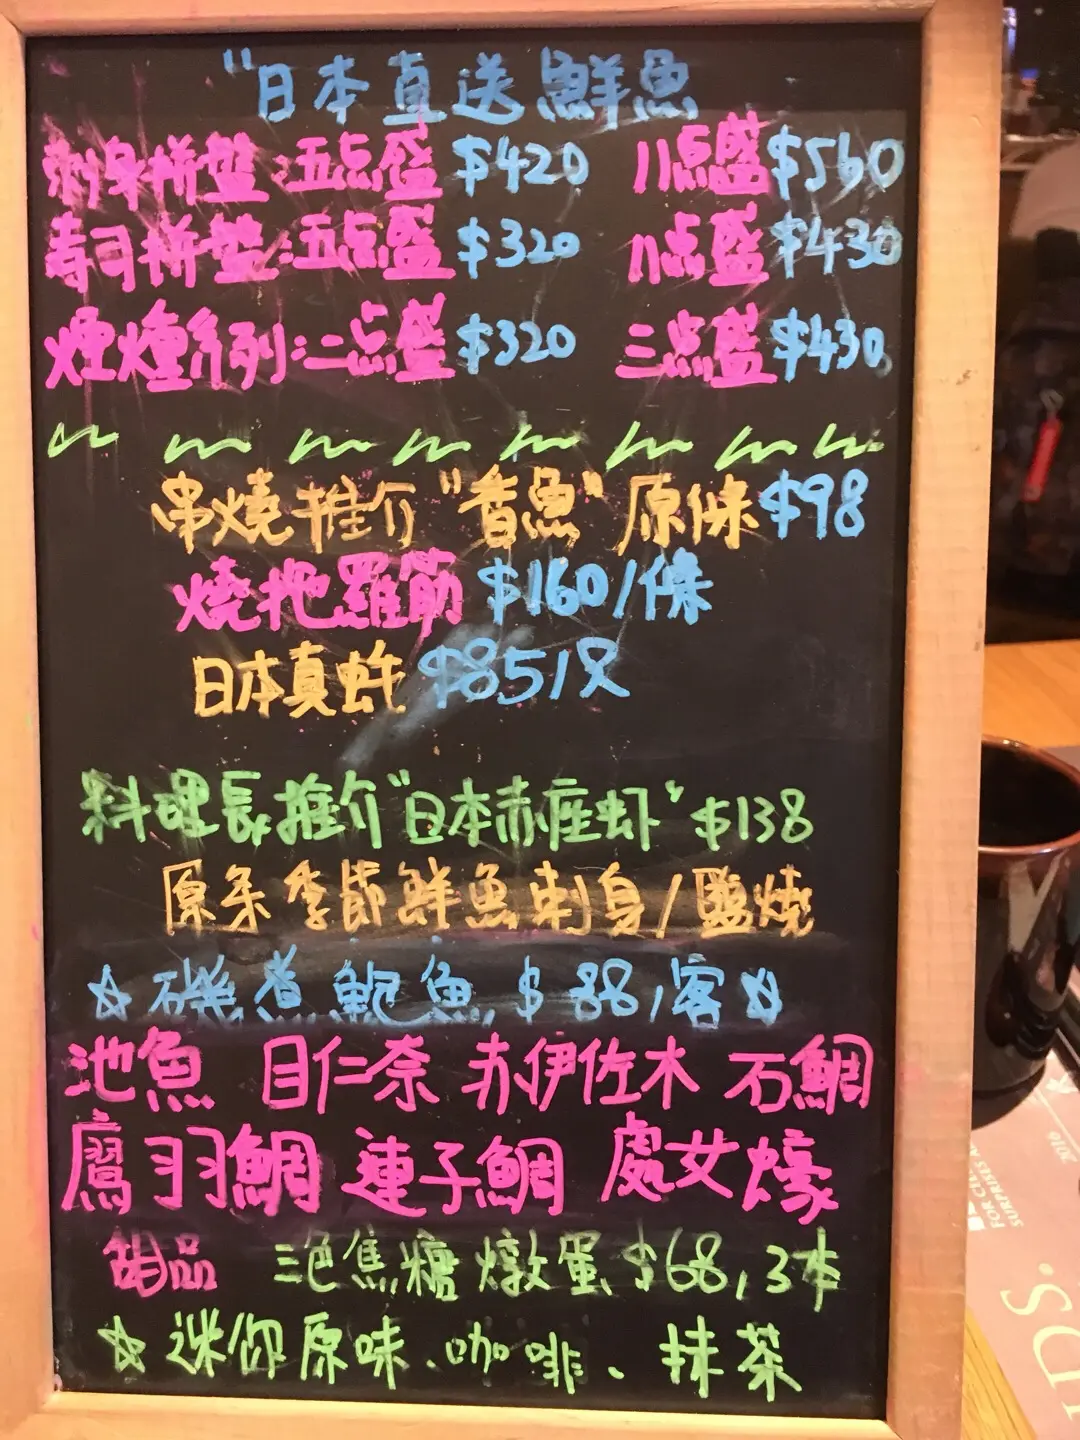 "日本直送鮮魚
刺身拼盤:五点盛 $420 八点盛 $560
寿司拼盤:五点盛 $320 八点盛 $430
煙燻系列:二点盛 $320 三点盛 $430
串燒推介"香魚"原條$98
燒池羅節 $160/條
日本真蚝 $85/只
料理長推介"日本赤座虾" $138
原条季節鮮魚刺身/鹽燒
☆磯煮鮑魚 $88/客☆
池魚 目仁奈 赤伊佐木 石鯛
鷹羽鯛 連子鯛 處女蠔
甜品 三色焦糖燉蛋 $68,3本
☆迷你原味、咖啡、抹茶
2016
FOR CEL
SURPRISES A